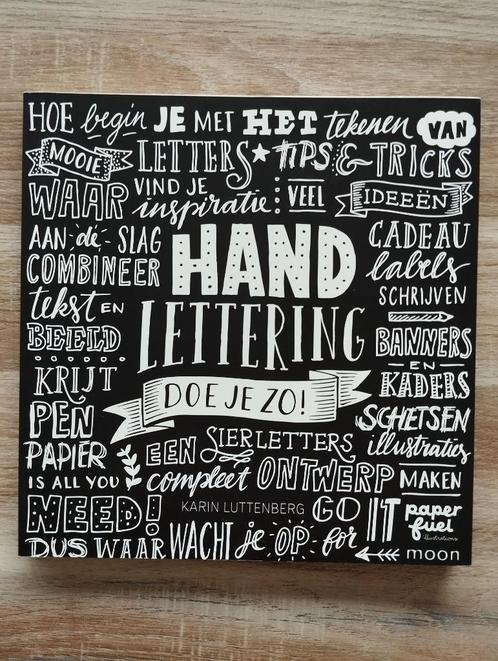 HOE begin JE MET HET tekenen VAN
MOOIE LETTERS TIPS & TRICKS
WAAR VIND JE inspiratie: VEEL IDEEËN
AAN de SLAG
COMBINEER
tekst EN
BEELD
KRIJT
PEN
PAPIER
IS ALL YOU
NEED!
HAND
LETTERING
DOE JE ZO!
CADEAU
labels
SCHRIJVEN
BANNERS
EN
KADERS
SCHETSEN
illustraties
MAKEN
EEN SIERLETTERS
compleet ONTWERP
KARIN LUTTENBERG
DUS WAAR WACHT je OP GO for IT
paper
fuel
illustrations
moon